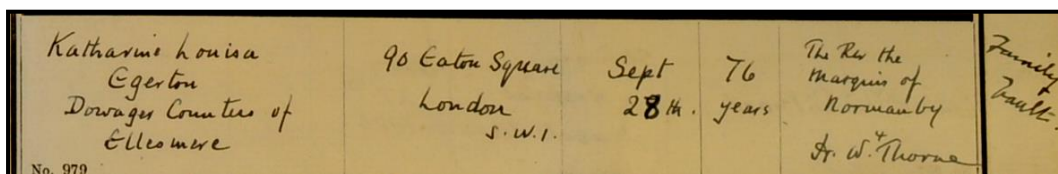 Katharine Louisa
Egerton
Dowager Countess of
Ellesmere
No. 979
90 Eaton Square
London
S.W.1.
Sept
28th.
76
years
The Rev the
Marquis of
Normanby
+
H. W. Thorne
Family
Vault.